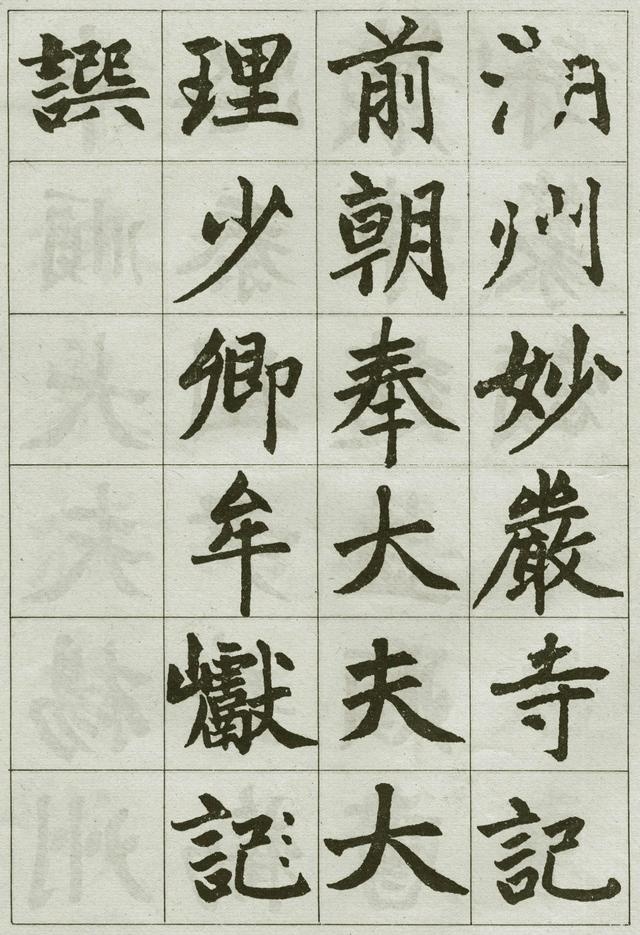 湖州妙嚴寺記
前朝奉大夫大
理少卿牟巘記
譔